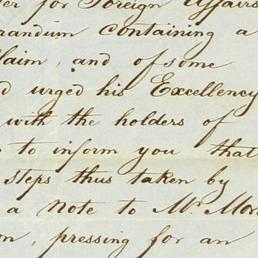 er for Foreign Affairs
randum containing a
laim, and of some
d urged his Excellency
with the holders of
to inform you that
steps thus taken by
a Note to Mr. Mor
n, pressing for an